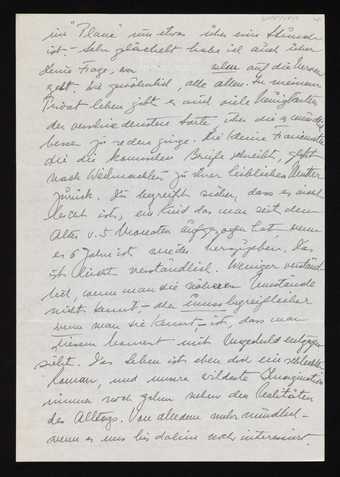 im "Plane" um etwas über eine Stunde
ist. – Sehr gelächelt habe ich auch über
deine Frage, wer auf die Nerven
geht. Wie gewöhnlich, alle allen. In meinem
Privatleben gibt es auch viele Neuigkeiten
der verschiedensten Sorte über die es mündlich
besser zu reden ginge. Die kleine Französin
die die komischen Briefe schreibt, geht
nach Weihnachten zu ihrer leiblichen Mutter
zurück. Du begreifst sicher, dass es nicht
leicht ist, ein Kind das man seit dem
Alter v. 5 Monaten aufgezogen hat, wenn
es 6 Jahre ist wieder herzugeben. Das
ist leicht verständlich. Weniger verständ-
lich, wenn man die näheren Umstände
nicht kennt – aber umso begreiflicher
wenn man sie kennt – ist, dass man
diesem Moment mit Ungeduld entgegen
sieht. Das Leben ist eben doch ein schlechter
Roman, und unsere wildeste Imagination
immer noch zahm neben den Realitäten
des Alltags. Von alledem mehr mündlich –
wenn es uns bis dahin noch interessiert.